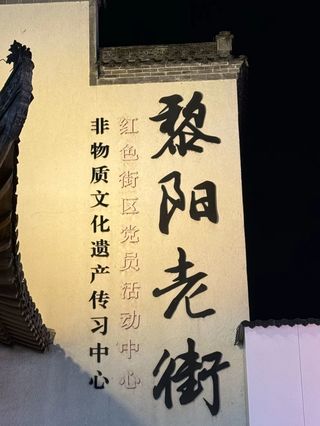 黎阳老街
红色街区党员活动中心
非物质文化遗产传习中心